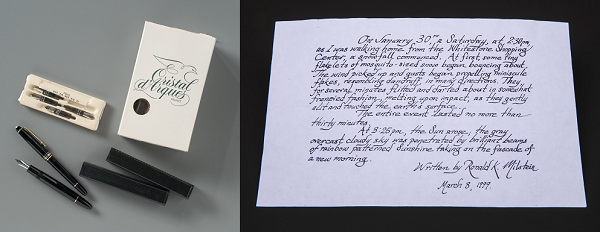 Cristal
d'Arques
On January 30th a Saturday, at 2:30pm
as I was walking home from the Whitestone Shopping
Center, a snowfall commenced. At first some tiny
flakelets of mosquito-sized snow began, bouncing about.
The wind picked up and gusts began propelling miniscule
flakes, resembling dandruff, in many directions. They
for several minutes flitted and darted about in somewhat
frenzied fashion, melting upon impact, as they gently
slit and touched the earth's surface.
The entire event lasted no more than
thirty minutes.
At 3:25pm, the Sun arose, the gray
overcast cloudy sky was penetrated by brilliant beams
of rainbow patterned sunshine taking on the fascade of
a new morning.
Written by Ronald K. Milstein
March 8, 1999.